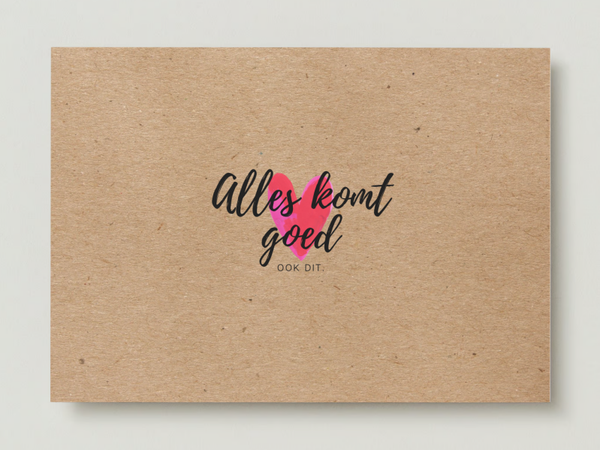 Alles komt
goed
OOK DIT.